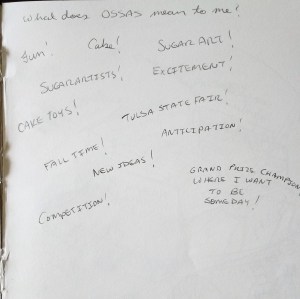 What does OSSAS mean to me!
Fun! Cake! SUGAR ART!
SUGAR ARTISTS! EXCITEMENT!
CAKE TOYS! TULSA STATE FAIR!
ANTICIPATION!
FALL TIME!
NEW IDEAS!
GRAND PRIZE CHAMPION
WHERE I WANT
TO BE
SOMEDAY!
COMPETITION!